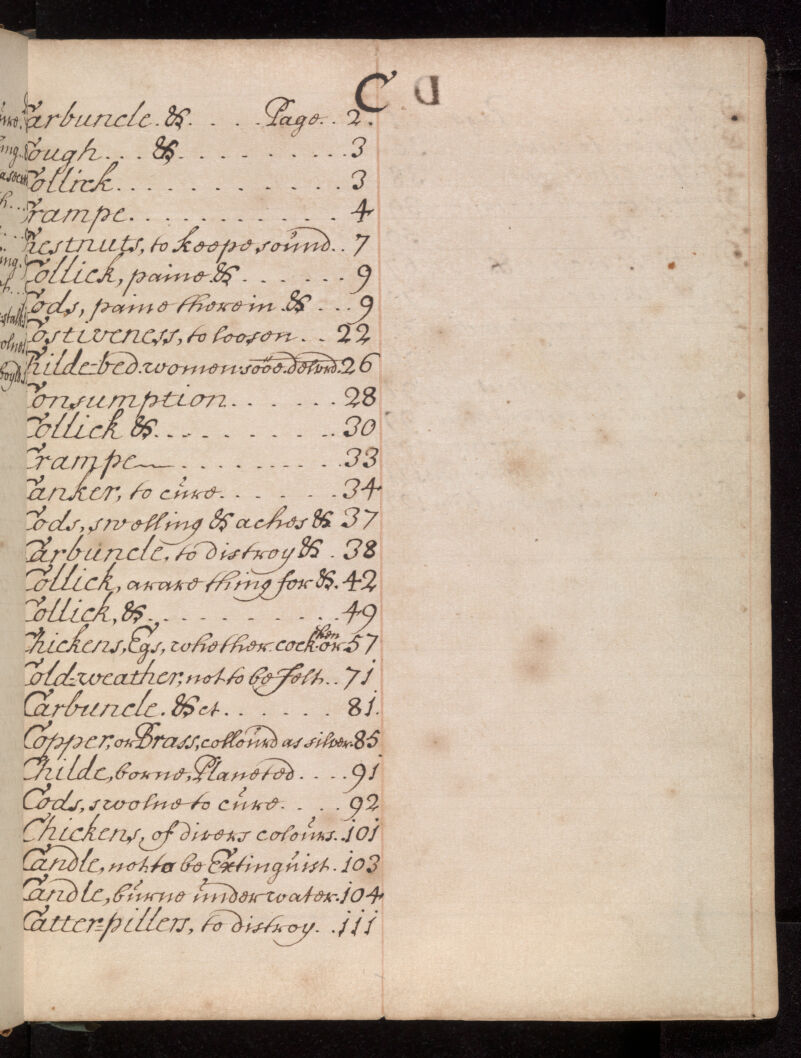 C
Carbuncle. &. . . . . Page. . 2.
Cough. . . &. . . . . . . . . . 3
Collick. . . . . . . . . . . . 3
Crampe. . . . . . . . . . . 4
Chestnuts, to keepe sound. . 7
Collick, paine & . . . . . . 9
Cods, paine therein & . . . 9
Costiveness, to loosen . . 22
Childe=bed women: sooe. delvrd. 26
Consumption. . . . . . 28
Collick &. . . . . . . . . 30
Crampe . . . . . . . . . 33
Canker, to cure. . . . . . 34
Cods, swelling & aches & 37
Carbuncle, to distroy & . 38
Collick, a rare thing for &. 42
Collick, &. . . . . . . . . . 49
Chickens, Egs, whether cock or hen 57
Cold=weather, not to be felt. . 71
Carbuncle. & ct. . . . . . 81.
Copper, or Brass, collourd as silver. 85
Childe, borne, Planeted. . . . 91
Cods, swolne to cure. . . . 92
Chickens, of divers colours. . 101
Candle, not to be Extinguist. 103
Candle, burne under water. 104
Catter=pillers, to distroy. . 111